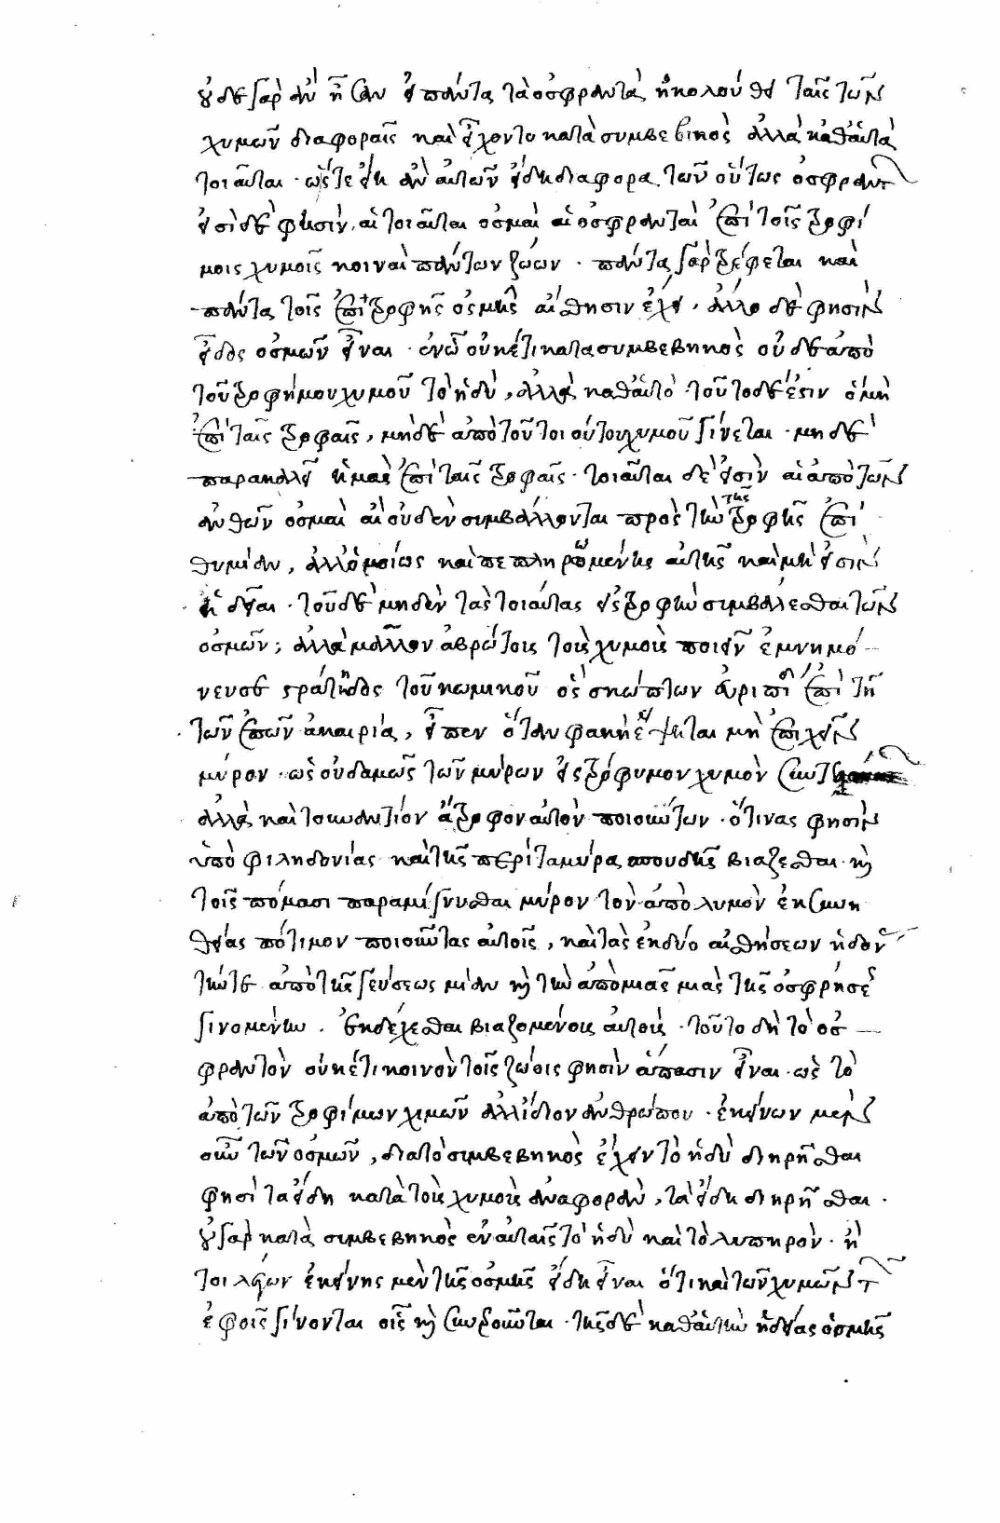 οὐδὲ γὰρ ἂν ἦσαν εἰ πάντα τὰ ὀσφραντὰ ἠκολούθει ταῖς τῶν
χυμῶν διαφοραῖς καὶ εἴχοντο κατὰ συμβεβηκὸς ἀλλὰ καθαυτὰ
τοιαῦται · ὥστε εἴη ἂν αὐτῶν εἴδη διαφορα τῶν οὕτως ὀσφραντ
εἰσὶ δέ φησιν, αἱ τοιαῦται ὀσμαὶ αἱ ὀσφρανταὶ ἐπὶ τοῖς τροφί
μοις χυμοῖς κοιναὶ πάντων ζώων · πάντα γὰρ τρέφεται καὶ
πάντα τοῖς ἐπὶ τροφῆς ὀσμῆς αἴσθησιν ἔχει, ἄλλο δέ φησιν
εἶδος ὀσμῶν εἶναι · ἐν ᾧ οὐκέτι κατασυμβεβηκὸς οὐδὲ ἀπὸ
τοῦ τροφήμου χυμοῦ τὸ ἡδύ, ἀλλὰ καθαὑτό · τοῦτο δέ ἐστιν ὁ μὴ
ἐπὶ ταῖς τροφαῖς, μηδὲ ἀπὸ τοῦ τοιούτου χυμοῦ γίνεται · μηδὲ
παρακαλεῖ ἡμας ἐπὶ ταῖς τροφαῖς · τοιαῦται δέ εἰσιν αἱ ἀπὸ τῶν
ἀνθῶν ὀσμαὶ αἳ οὐδὲν συμβάλλονται πρὸς τὴν τῆς τροφῆς ἐπι
θυμίαν, ἀλλ' ὁμοίως καὶ πεπληρωμένης αὐτῆς καὶ μὴ εἰσὶν
ἡδεῖαι · τοῦ δὲ μηδὲν τὰς τοιαύτας εἰς τροφὴν συμβάλεσθαι τῶν
ὀσμῶν; ἀλλὰ μᾶλλον ἀβρώτοις τοὺς χυμοὺς ποιεῖν ἐμνημό
νευσε στράτηδος τοῦ κωμικοῦ ὃς σκώπτων εὐριπίδ ἐπὶ τῇ
τῶν ἐπῶν ἀκαιρία, εἶπεν ὅταν φακὴ ἕψηται μὴ ἐπιχεῖν
μύρον · ὡς οὐδαμῶς τῶν μύρων εἰς τρόφυμον χυμὸν
ἀλλὰ καὶ τοὐναντίον ἄτροφον αὐτὸν ποιούντων · ὅτινας φησὶν
ὑπὸ φιληδονίας καὶ τῆς περὶ τα μύρα σπουδῆς βιαζεσθαι · καὶ
τοῖς πόμασι παραμίγνυσθαι μύρον τὸν ἀπὸ λυμὸν ἐκ συνη
θείας πότιμον ποιοῦντας αὐτοῖς, καὶ τὰς ἐκ δύο αἰσθήσεων ἡδον
τήν τε ἀπὸ τῆς γεύσεως μίαν καὶ τὴν ἀπὸ μιᾶς μιᾶς τῆς ὀσφρήσε
γινομένην · ἐνδέχεσθαι βιαζομένοις αὐτοὺς · τοῦτο δὴ τὸ ὀσ
φραντὸν οὐκέτι κοινὸν τοῖς ζώοις φησὶν ἅπασιν εἶναι · ὡς τὸ
ἀπὸ τῶν τροφίμων χυμῶν ἀλλ' ἴδιον ἀνθρώπου · ἐκείνων μὲν
οὖν τῶν ὀσμῶν, διὰ τὸ συμβεβηκὸς ἔχειν τὸ ἡδὺ διηρῆσθαι
φησὶ τὰ εἴδη κατὰ τοὺς χυμοὺς ἀναφοράν, τὰ εἴδη διηρῆσθαι ·
οὐ γὰρ κατὰ συμβεβηκὸς ἐν αὐταῖς τὸ ἡδὺ καὶ τὸ λυπηρόν · ἢ
τοι λέγων ἐκείνης μὲν τῆς ὀσμῆς εἴδη εἶναι ὅτι καὶ τῶν χυμῶν τ
ἐφ' οἷς γίνονται οἷς καὶ συνδοῦνται · τῆς δὲ καθαὑτὴν ἡδείας ὀσμῆς